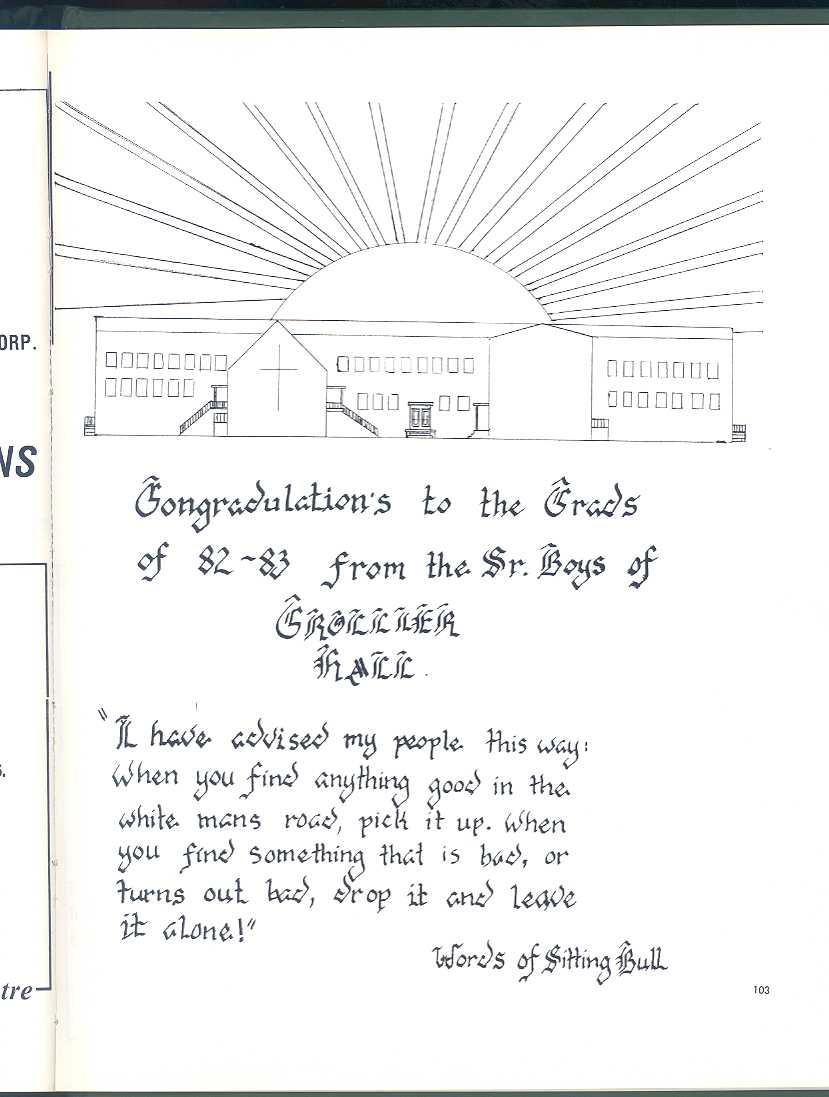 ORP.
NS
s.
tre
Congradulation's to the Grads
of 82~83 from the Sr. Boys of
GROLLIER
HALL.
"I have advised my people this way:
When you find anything good in the
white mans road, pick it up. When
you find something that is bad, or
turns out bad, drop it and leave
it alone!"
Words of Sitting Bull
103